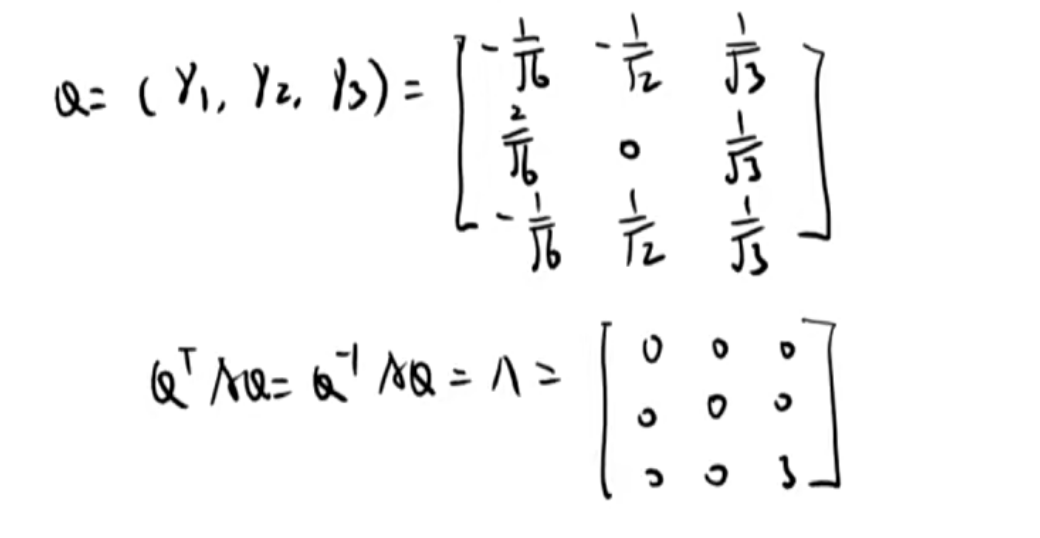 Q = (γ₁, γ₂, γ₃) = [ -1/√6 -1/√2 1/√3
2/√6 0 1/√3
-1/√6 1/√2 1/√3 ]
QᵀAQ = Q⁻¹AQ = Λ = [ 0 0 0
0 0 0
0 0 3 ]